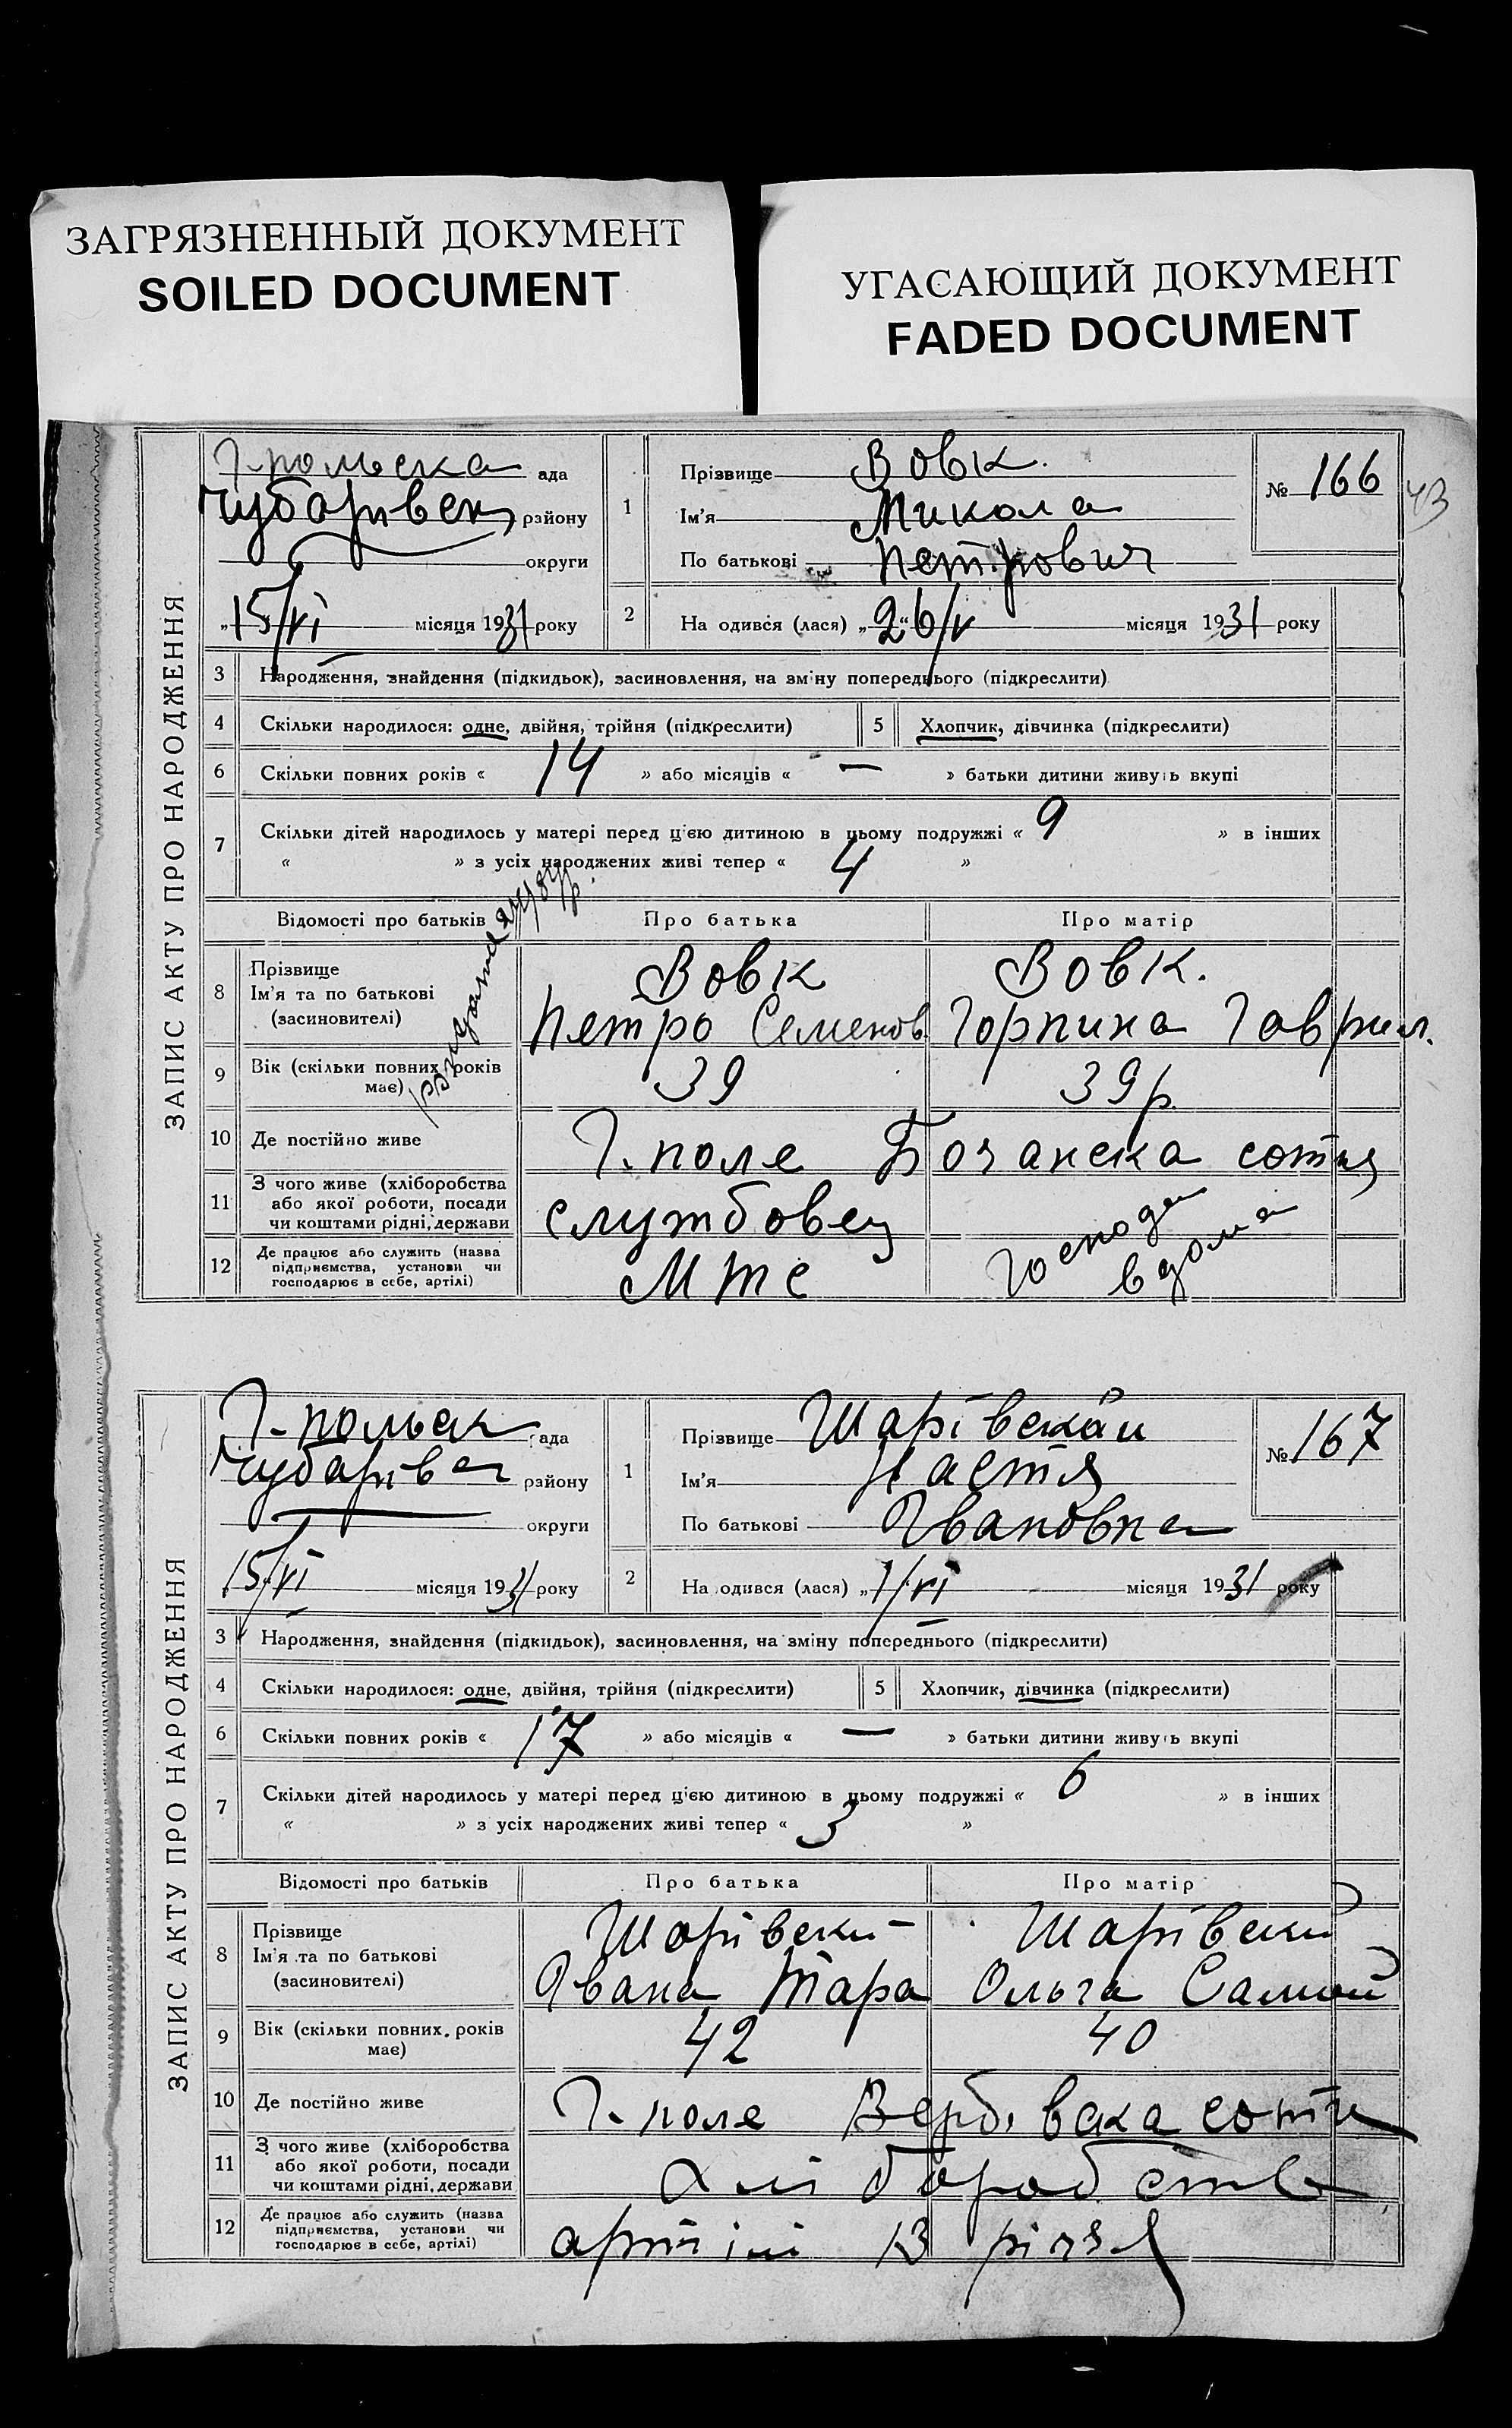 ЗАГРЯЗНЕННЫЙ ДОКУМЕНТ
SOILED DOCUMENT
УГАСАЮЩИЙ ДОКУМЕНТ
FADED DOCUMENT
ЗАПИС АКТУ ПРО НАРОДЖЕННЯ
Г-польска ада
Чубарівськ району
округи
„15/VI місяця 1931 року
1
Прізвище Вовк.
Ім'я Микола
По батькові Петрович
№ 166
43
2 На одився (лася) „26/V місяця 1931 року
3 Народження, знайдення (підкидьок), засиновлення, на зміну попереднього (підкреслити)
4 Скільки народилося: одне, двійня, трійня (підкреслити) 5 Хлопчик, дівчинка (підкреслити)
6 Скільки повних років « 14 » або місяців « — » батьки дитини живуть вкупі
7 Скільки дітей народилось у матері перед ц'єю дитиною в цьому подружжі « 9 » в інших
« » з усіх народжених живі тепер « 4 »
Відомості про батьків Про батька Про матір
8 Прізвище
Ім'я та по батькові
(засиновителі)
Вовк Вовк.
Петро Семенов. Горпина Гаврил.
9 Вік (скільки повних років має) 39 39 р.
10 Де постійно живе Г. поле Бочанска сотня
11 З чого живе (хліборобства
або якої роботи, посади
чи коштами рідні, держави
службовець
12 Де працює або служить (назва
підприємства, установи чи
господарює в себе, артілі)
Мтс
Господа
вдома
ЗАПИС АКТУ ПРО НАРОДЖЕННЯ
Г-польск ада
Чубарівск району
округи
15/VI місяця 1931 року
1
Прізвище Шарівская
Ім'я Настя
По батькові Ивановна
№ 167
2 На одився (лася) „1/VI місяця 1931 року
3 Народження, знайдення (підкидьок), засиновлення, на зміну попереднього (підкреслити)
4 Скільки народилося: одне, двійня, трійня (підкреслити) 5 Хлопчик, дівчинка (підкреслити)
6 Скільки повних років « 17 » або місяців « — » батьки дитини живуть вкупі
7 Скільки дітей народилось у матері перед ц'єю дитиною в цьому подружжі « 6 » в інших
« » з усіх народжених живі тепер « 3 »
Відомості про батьків Про батька Про матір
8 Прізвище
Ім'я та по батькові
(засиновителі)
Шарівски Шарівски
Ивана Тара Ольга Самой
9 Вік (скільки повних років має) 42 40
10 Де постійно живе Г. поле Вербівська сотня
11 З чого живе (хліборобства
або якої роботи, посади
чи коштами рідні, держави
хліборобство
12 Де працює або служить (назва
підприємства, установи чи
господарює в себе, артілі)
артілі 13 річчя